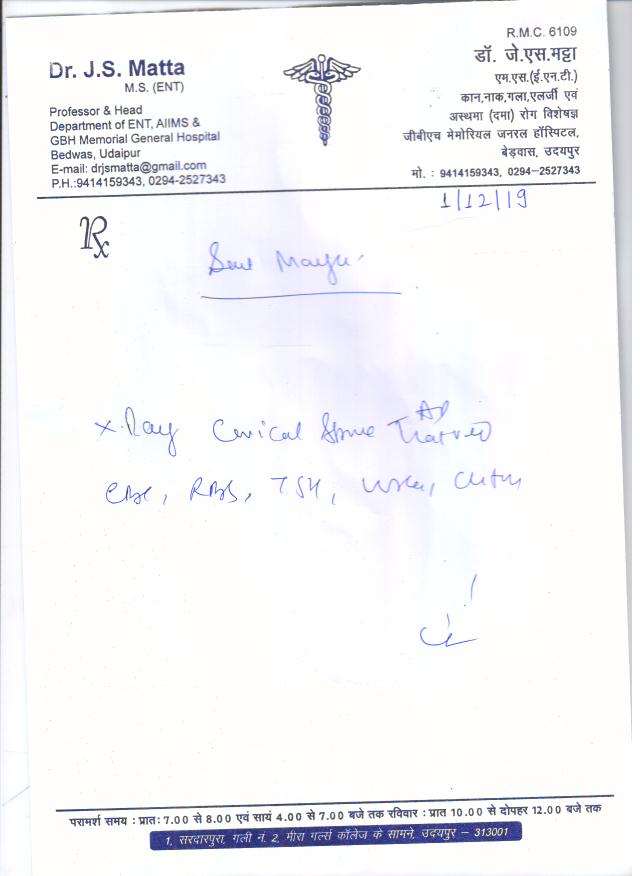 R.M.C. 6109
Dr. J.S. Matta
M.S. (ENT)
Professor & Head
Department of ENT, AIIMS &
GBH Memorial General Hospital
Bedwas, Udaipur
E-mail: drjsmatta@gmail.com
P.H.:9414159343, 0294-2527343
डॉ. जे.एस.मट्ठा
एम.एस.(ई.एन.टी.)
कान,नाक,गला,एलर्जी एवं
अस्थमा (दमा) रोग विशेषज्ञ
जीबीएच मेमोरियल जनरल हॉस्पिटल,
बेड़वास, उदयपुर
मो. : 9414159343, 0294-2527343
1/12/19
Rx
X-Ray Cervical Spine AP
CBC, RBS, TSH,
परामर्श समय : प्रातः 7.00 से 8.00 एवं सायं 4.00 से 7.00 बजे तक रविवार : प्रात 10.00 से दोपहर 12.00 बजे तक
1, सरदारपुरा, गली नं. 2, मीरा गर्ल्स कॉलेज के सामने, उदयपुर – 313001